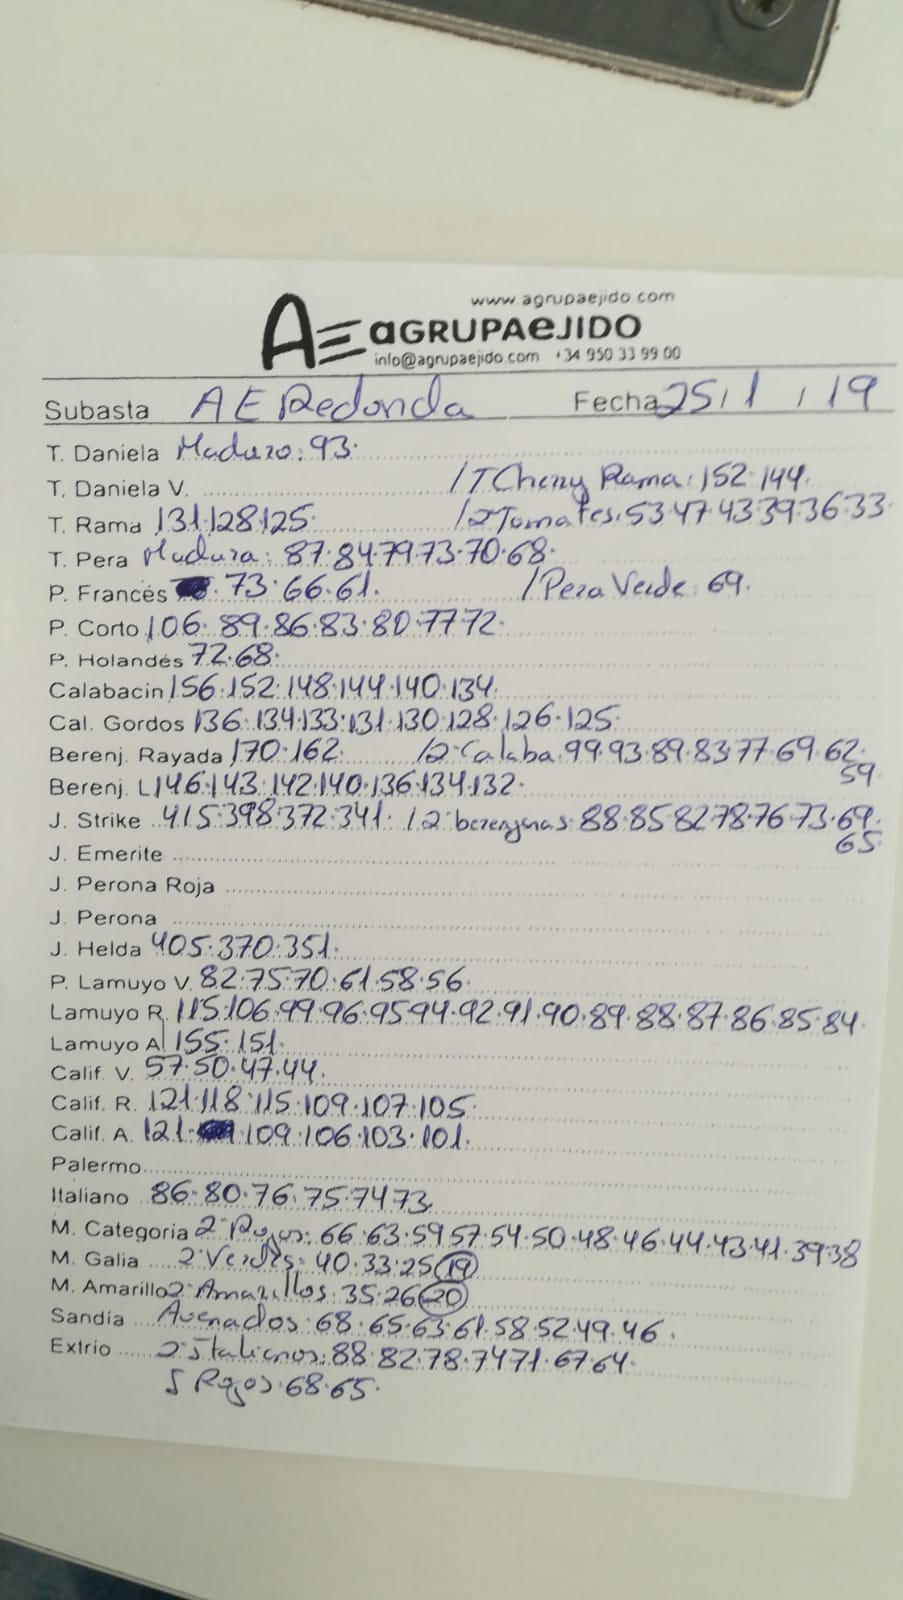 www.agrupaejido.com
AE aGRUPAeJIDO
info@agrupaejido.com +34 950 33 99 00
Subasta AE Redonda Fecha 25/1/19
T. Daniela Maduro: 93.
T. Daniela V. /T Cherry Rama: 152.144.
T. Rama 131.128.125. /2ª Tomates. 53.47.43.39.36.33.
T. Pera Madura: 87.84.79.73.70.68.
P. Francés . 73.66.61. /Pera Verde: 69.
P. Corto 106.89.86.83.80.77.72.
P. Holandés 72.68.
Calabacin 156.152.148.144.140.134.
Cal. Gordos 136.134.133.131.130.128.126.125.
Berenj. Rayada 170.162. /2ª Calaba. 99.93.89.83.77.69.62.
59.
Berenj. L 146.143.142.140.136.134.132.
J. Strike 415.398.372.341. /2ª berenjenas: 88.85.82.78.76.73.69.
65.
J. Emerite
J. Perona Roja
J. Perona
J. Helda 405.370.351.
P. Lamuyo V. 82.75.70.61.58.56.
Lamuyo R. 115.106.99.96.95.94.92.91.90.89.88.87.86.85.84.
Lamuyo A. 155.151.
Calif. V. 57.50.47.44.
Calif. R. 121.118.115.109.107.105.
Calif. A. 121. .109.106.103.101.
Palermo
Italiano 86.80.76.75.74.73.
M. Categoria 2ª Rojos: 66.63.59.57.54.50.48.46.44.43.41.39.38
M. Galia 2ª Verdes: 40.33.25.19
M. Amarillo 2ª Amarillos: 35.26.20
Sandia Asenados: 68.65.63.61.58.52.49.46.
Extrio 2ª Italianos: 88.82.78.74.71.67.64.
S Rojos: 68.65.